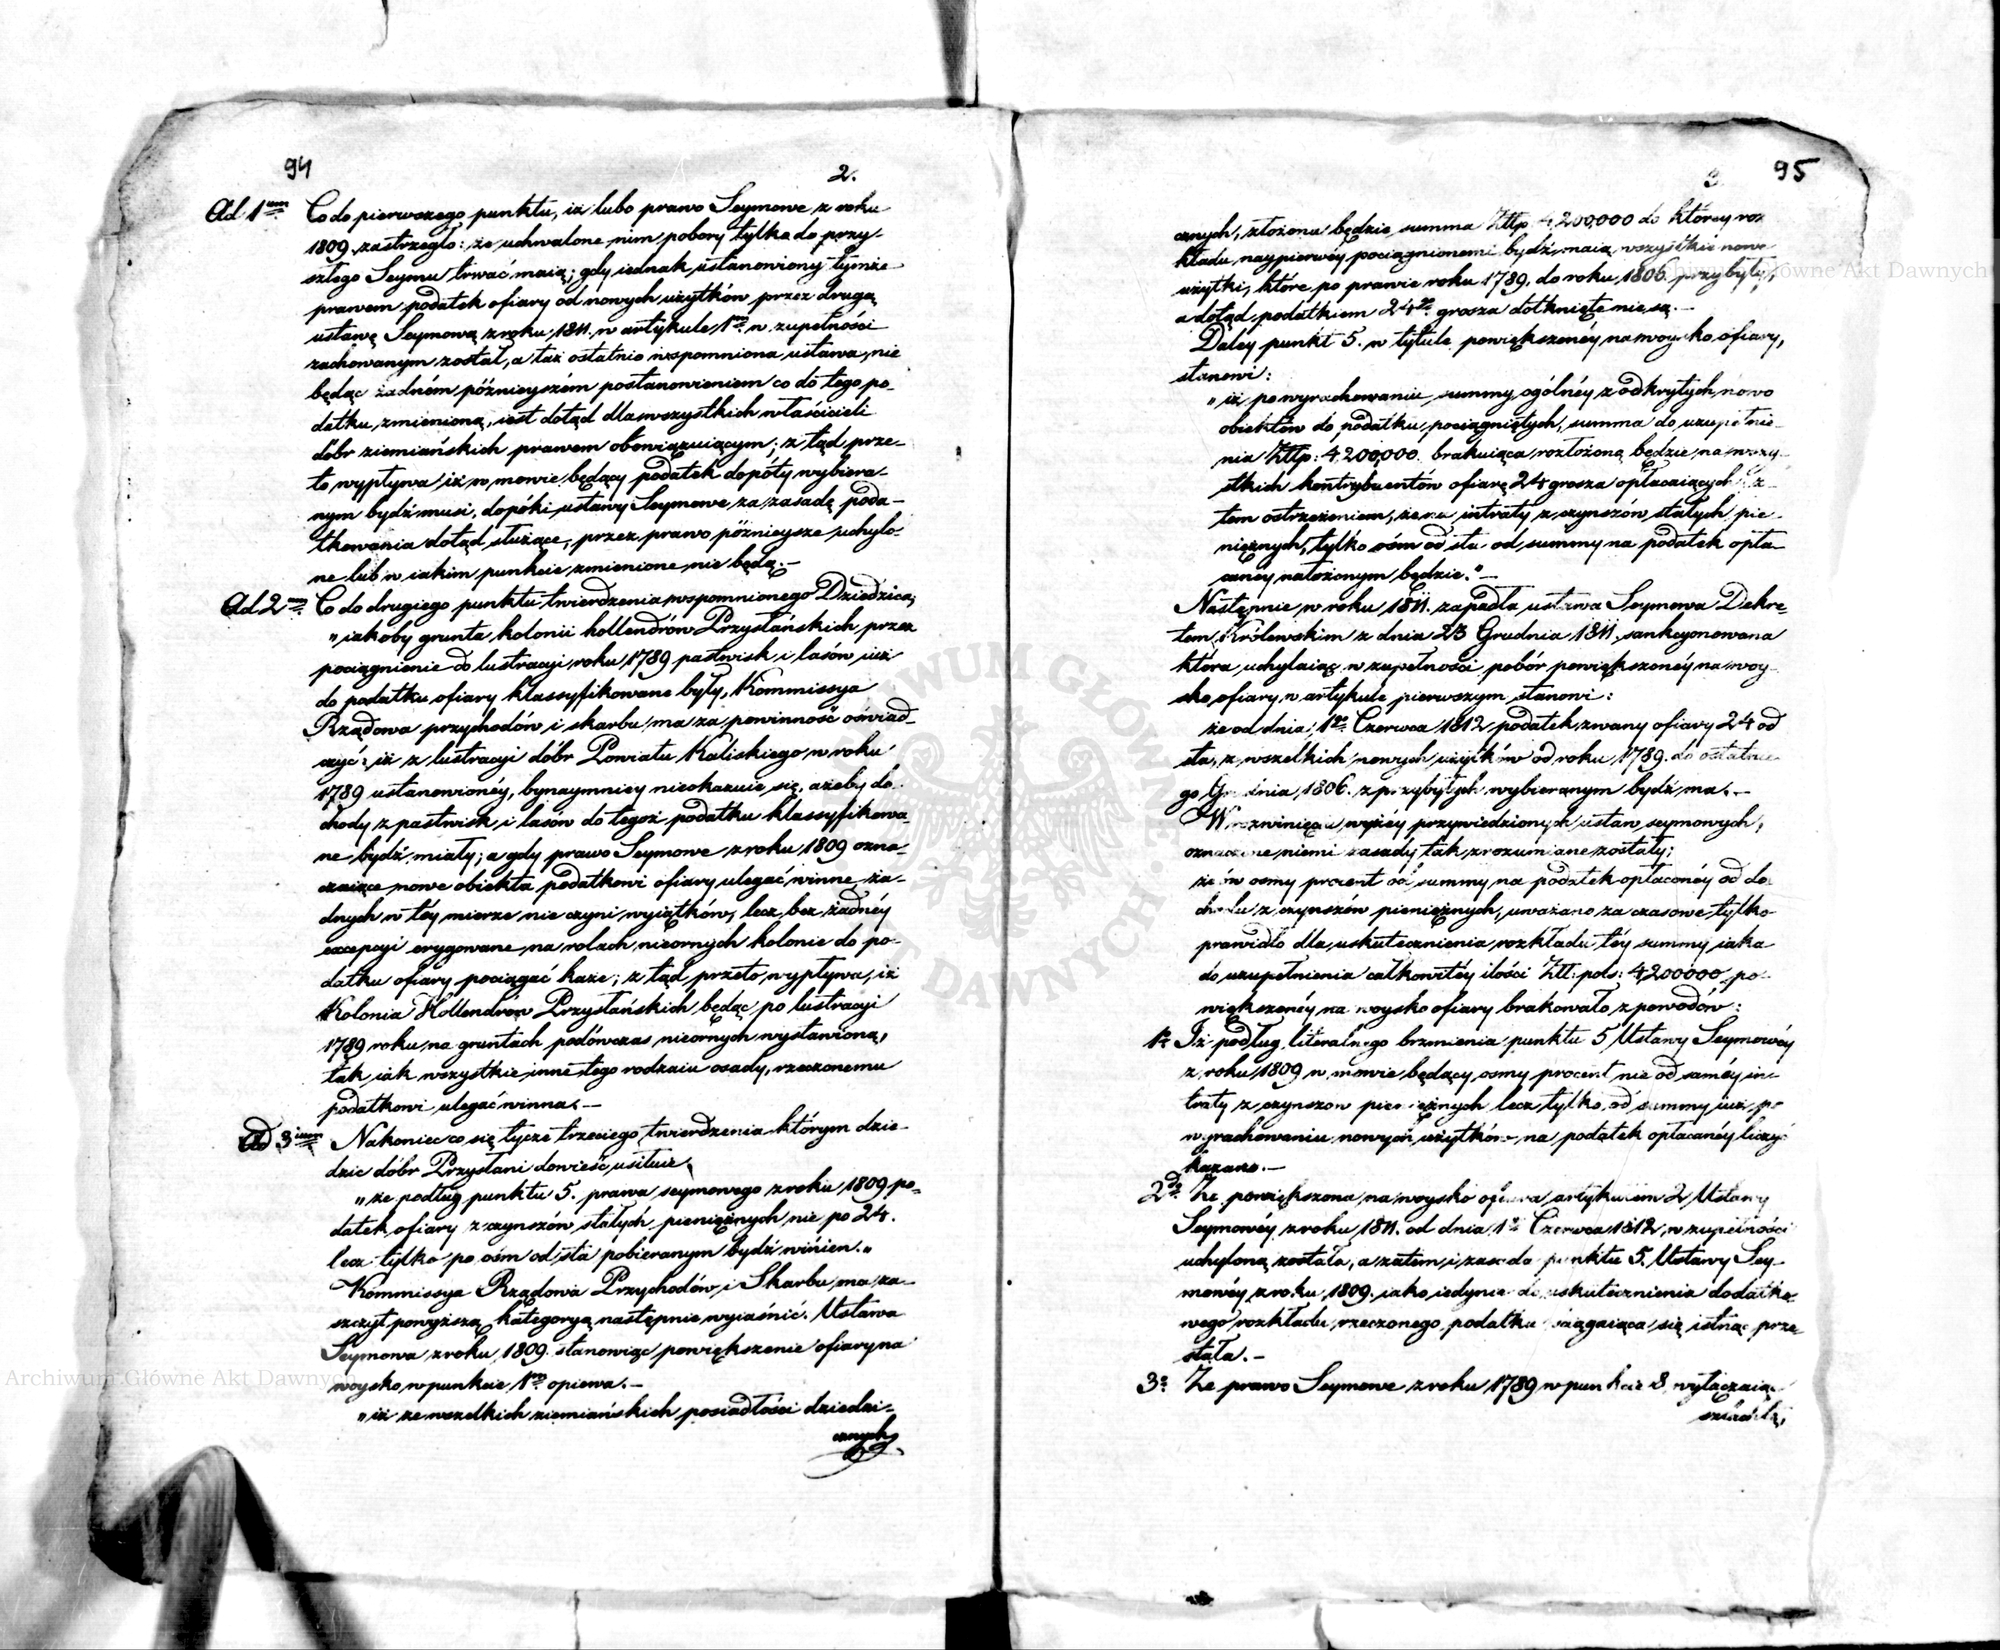 94
2.
Ad 1mum Co do pierwszego punktu, iż lubo prawo Seymowe z roku
1809. zastrzegło: że uchwalone nim pobory tylko do przy-
szłego Seymu trwać maią; gdy iednak ustanowiony tymże
prawem podatek ofiary od nowych użytków przez drugą
ustawę Seymową z roku 1811. w artykule 1m w zupełności
zachowanym został, a taż ostatnio wspomniona ustawa, nie
będąc żadném póżnieyszém postanowieniem co do tego po-
datku, zmienioną, iest dotąd dla wszystkich właścicieli
dóbr ziemiańskich prawem obowiązuiącym; z tąd prze-
to wypływa iż w mowie będący podatek dopóty wybiera-
nym bydź musi, dopóki ustawy Seymowe za zasadę poda-
tkowania dotąd służące, przez prawo póżnieysze uchylo-
ne lub w iakim punkcie zmienione nie będą.-
Ad 2um Co do drugiego punktu twierdzenia wspomnionego Dziedzica,
"iakoby grunta kolonii hollendrów Przystańskich przez
pociągnienie do lustracyi roku 1789 pastwisk i lasów iuż
do podatku ofiary klassyfikowane były, Kommissya
Rządowa przychodów i skarbu ma za powinność oświad-
czyć: iż z lustracyi dóbr Powiatu Kaliskiego w roku
1789 ustanowionéy, bynaymniey nieokazuie się, ażeby do-
chody z pastwisk i lasów do tegoż podatku klassyfikowa-
ne bydź miały; a gdy prawo Seymowe z roku 1809 ozna-
czaiące nowe obiekta podatkowi ofiary ulegać winne, ża-
dnych w téy mierze nie czyni wyiątków, lecz bez żadnéy
excepcyi erygowane na rolach nieornych kolonie do po-
datku ofiary pociągać każe; z tąd przeto wypływa, iż
Kolonia Hollendrów Przystańskich będąc po lustracyi
1789 roku na gruntach podówczas nieornych wystawioną,
tak iak wszystkie inne tego rodzaiu osady, rzeczonemu
podatkowi ulegać winna.-
Ad 3ium Nakoniec co się tycze trzeciego twierdzenia którym dzie-
dzic dóbr Przystani dowieść usiłuie,
"że podług punktu 5. prawa seymowego z roku 1809 po-
datek ofiary z czynszów stałych pieniężnych nie po 24.
lecz tylko po ośm od sta pobieranym bydź winien."
Kommissya Rządowa Przychodów i Skarbu ma za-
szczyt powyższą kategoryą następnie wyiaśnić. Ustawa
Seymowa z roku 1809. stanowiąc powiększenie ofiary na
woysko w punkcie 1m opiewa.-
"iż ze wszelkich ziemiańskich posiadłości dziedzi-
cznych
3.
95
cznych, złożona będzie summa Złtp. 4,200,000 do któréy roz
kładu naypierwéy pociągnionemi bydź maią wszystkie nowe
użytki, które po prawie roku 1789. do roku 1806. przybyły,
a dotąd podatkiem 24go grosza dotknięte nie są.-
Daley punkt 5. w tytule powiększonéy na woysko ofiary,
stanowi:
"iż po wyrachowaniu summy ogólnéy z odkrytych nowo
obiektów do podatku pociągniętych, summa do uzupełnie-
nia Złtp: 4,200,000. brakuiąca rozłożoną będzie na wszy-
stkich kontrybuentów ofiarę 24 grosza opłacaiących z
tem ostrzeżeniem, że na intraty z czynszów stałych pie-
niężnych, tylko ośm od sta od summy na podatek opła-
caney nałożonym będzie."-
Następnie w roku 1811. zapadła ustawa Seymowa Dekre-
tem Królewskim z dnia 23 Grudnia 1811. sankcyonowana
która uchylaiąc w zupełności pobór powiększonéy na woy-
sko ofiary w artykule pierwszym stanowi:
że od dnia 1go Czerwca 1812 podatek zwany ofiary 24 od
sta, z wszelkich nowych użytków od roku 1789. do ostatnie-
go Grudnia 1806. z przybyłych wybieranym bydź ma.-
W rozwinięciu wyżéy przywiedzionych ustaw seymowych,
oznaczone niemi zasady tak zrozumiane zostały;
że ów osmy procent od summy na podatek opłaconéy od do
chodu z czynszów pieniężnych, uważano za czasowe tylko
prawidło dla uskutecznienia rozkładu téy summy iaka
do uzupełnienia całkowitéy ilości Złł: pols: 4200000 po-
większonéy na woysko ofiary brakowało z powodów:
1o Iż podług literalnego brzmienia punktu 5 Ustawy Seymowéy
z roku 1809 w mowie będący osmy procent nie od saméy in-
traty z czynszow pieniężnych lecz tylko od summy iuż po
wyrachowaniu nowych użytków na podatek opłacanéy liczyć
kazano.-
2do Że powiększona na woysko ofiara artykułem 2 Ustawy
Seymowéy z roku 1811. od dnia 1go Czerwca 1812. w zupełności
uchyloną została, a zatem i zasada punktu 5. Ustawy Sey-
mowéy z roku 1809. iako iedynie do uskutecznienia dodatko-
wego rozkładu rzeczonego podatku ściągaiąca się istnąć prze-
stała.-
3o Że prawo Seymowe z roku 1789 w punkcie 8 wyłączaiąc
Archiwum Główne Akt Dawnych
Archiwum Główne Akt Dawnych
ARCHIWUM GŁÓWNE AKT DAWNYCH